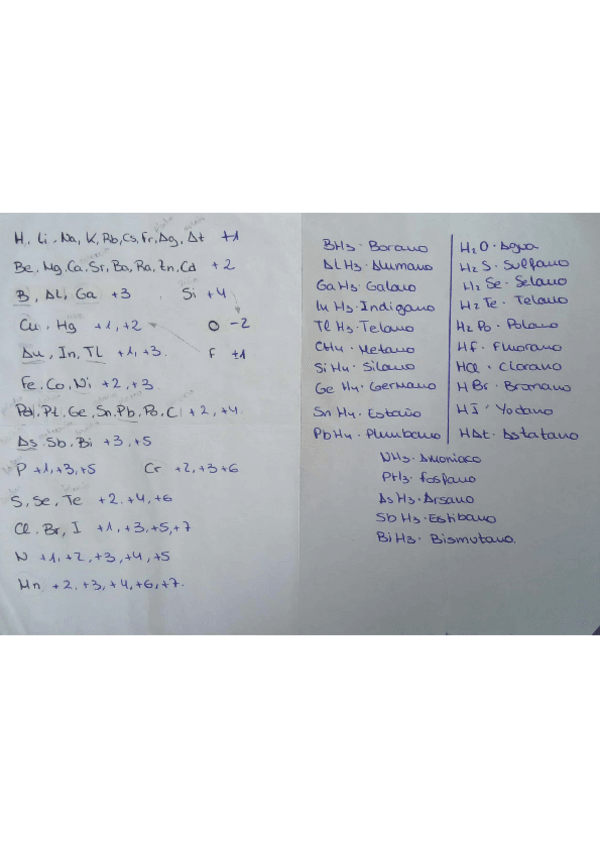 H, Li, Na, K, Rb, Cs, Fr, Ag, At +1
Be, Mg, Ca, Sr, Ba, Ra, Zn, Cd +2
B, AL, Ga +3 Si +4
Cu, Hg +1, +2 O -2
Au, In, TL +1, +3. F +1
Fe, Co, Ni +2, +3
Pd, Pt, Ge, Sn, Pb, Po, C +2, +4.
As, Sb, Bi +3, +5
P +1, +3, +5 Cr +2, +3 +6
S, Se, Te +2, +4, +6
Cl, Br, I +1, +3, +5, +7
N +1, +2, +3, +4, +5
Mn +2, +3, +4, +6, +7.
BH3 · Borano
ALH3 · Alumano
GaH3 · Galano
InH3 · Indigano
TlH3 · Telano
CH4 · Metano
SiH4 · Silano
GeH4 · Germano
SnH4 · Estaño
PbH4 · Plumbano
H2O · Agua
H2S · Sulfano
H2Se · Selano
H2Te · Telano
H2Po · Polano
Hf · Fluorano
HCl · Clorano
HBr · Bromano
HI · Yodano
HAt · Astatano
NH3 · Amoniaco
PH3 · fosfano
AsH3 · Arsano
SbH3 · Estibano
BiH3 · Bismutano.